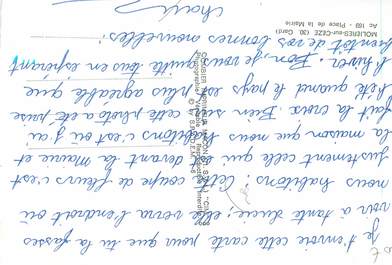 je t'envoie cette carte pour que tu la fasses
voir à tante Lucie, elle verra l'endroit où
nous habitons. Cette coupe de fleurs c'est
justement celle qui est devant la mairie et
la maison que nous habitons c'est où j'ai
fait la croix. Bien sur cette photo a été prise
l'été quand le pays est plus agréable que
l'hiver. Bon, je vous quitte tous en espérant
bientôt de vos bonnes nouvelles.
MOLIERES-sur-CEZE (30 Gard)
Ac 169 - Place de la Mairie